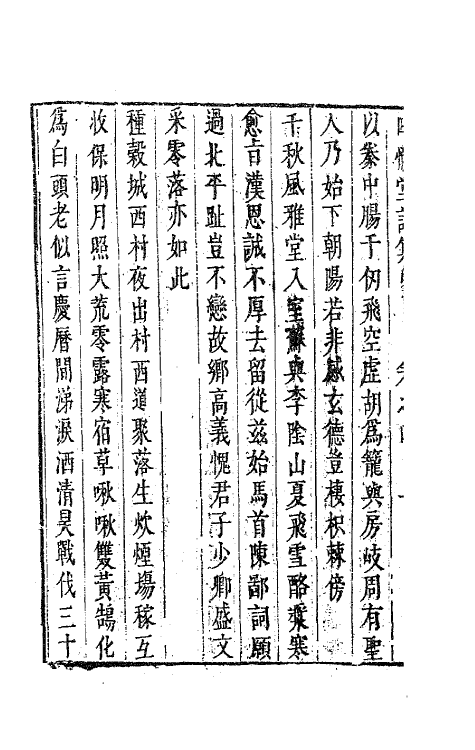 四憶堂詩集 卷之四
以豢中腸千仞飛空虛胡爲籠與房岐周有聖
人乃始下朝陽若非感玄德豈棲枳棘傍
千秋風雅堂入室蘇與李陰山夏飛雪酪漿寒
愈旨漢思誠不厚去留從茲始馬首陳鄙詞願
過北平趾豈不戀故鄉高義愧君子少卿盛文
采零落亦如此
種穀城西村夜出村西道聚落生炊煙塲稼互
收保明月照大荒零露寒宿草啾啾雙黃鵠化
爲白頭老似言慶曆間涕淚洒清昊戰伐三十